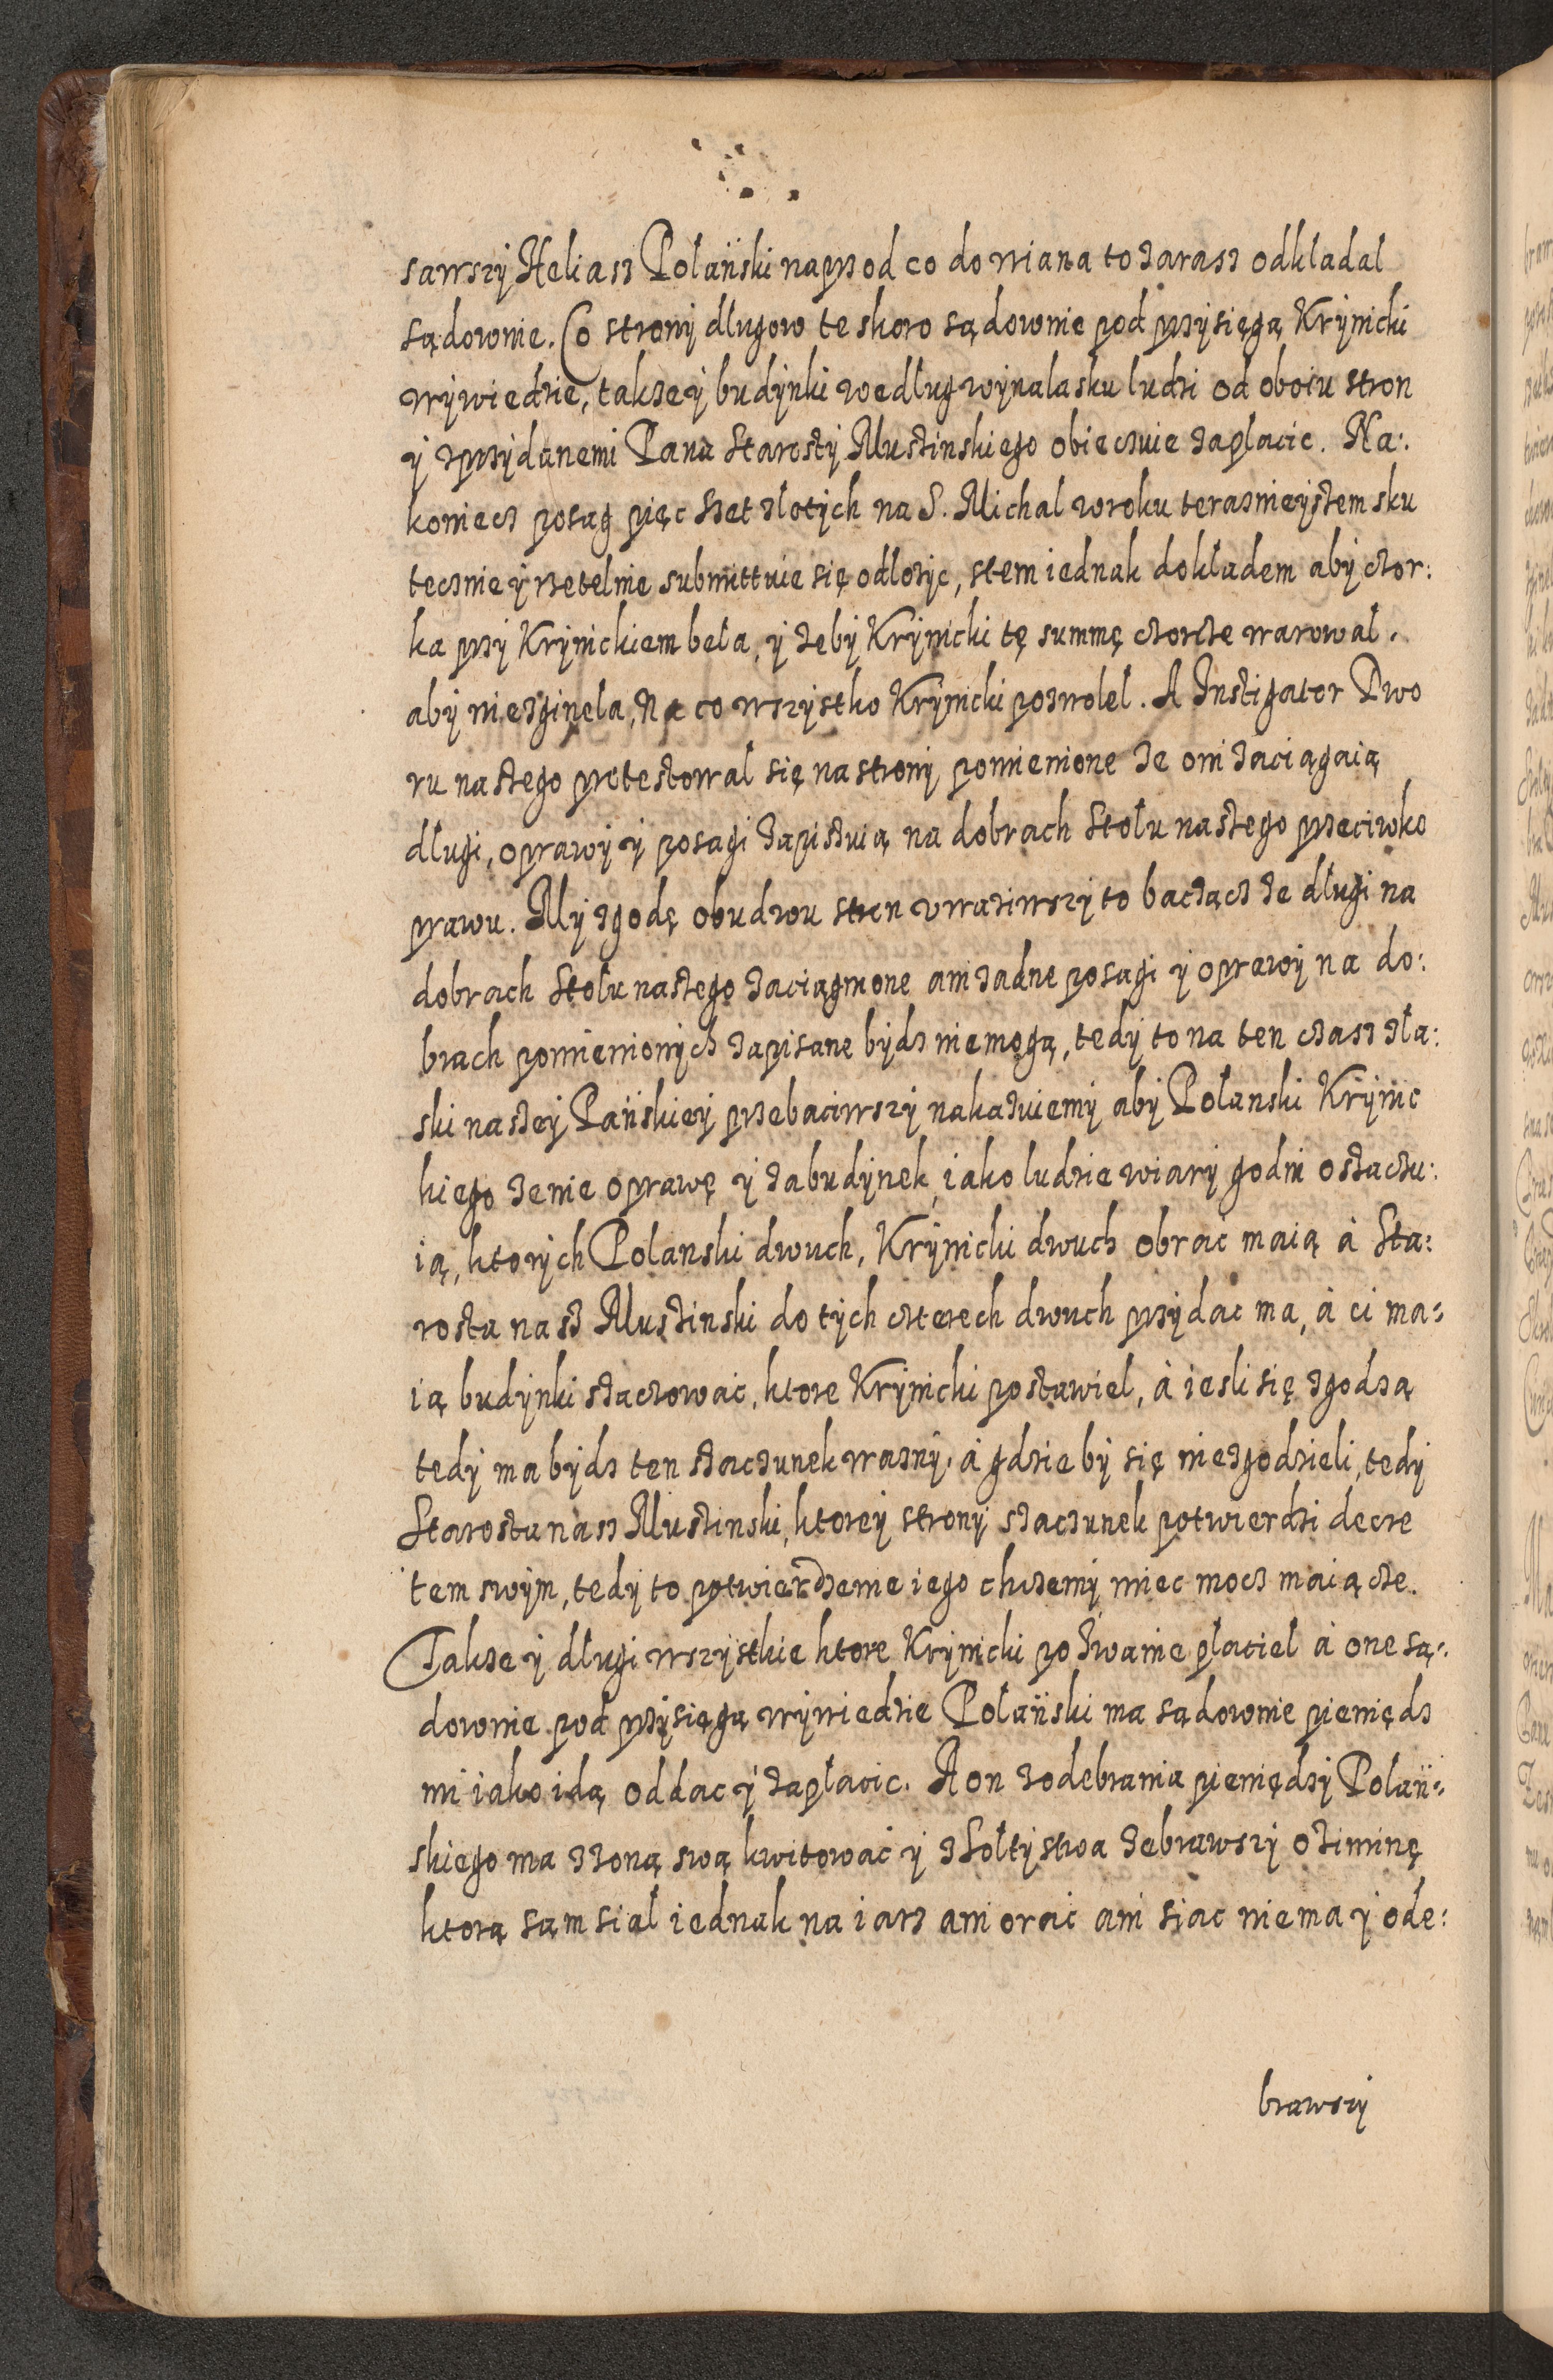 sawszy Heliasz Polański naprzod co do wiana to zarasz odkladal
sądownie. Co strony dlugow te skoro sądownie pod przysięgą Krynicki
wywiedzie, takze y budynki wedlug wynalasku ludzi od oboiu stron
y zprzydanemi Pana Starosty Muszinskiego obiecuie zaplacic. Na:
koniecz posag pięc szet zlotych na S. Michal w roku terasnieyszem sku
tecznie y rzetelnie submittuie się odlozyc, stem iednak dokladem aby czor:
ka przy Krynickiem bela, y zeby Krynicki tę summę czorcze warowal,
aby niezginela, Na co wszystko Krynicki pozwolel. A Instigator Dwo
ru naszego protestowal się na strony pomienione ze oni zaciągaią
dlugi, oprawy y posagi zapisuią na dobrach Stolu naszego przeciwko
prawu. My zgodę obudwu stron uwaziwszy to baczącz ze dlugi na
dobrach Stolu naszego zaciągnione ani zadne posagi y oprawy na do:
brach pomienionych zapisane bydz niemogą, tedy to na ten czasz zla:
ski naszey Pańskiey przebaciwszy nakazuiemy aby Polanski Krynic
kiego zenie oprawę y zabudynek, iako ludzie wiary godni oszaczu:
ią, ktorych Polanski dwuch, Krynicki dwuch obrac maią à Sta:
rosta nasz Muszinski do tych czterech dwuch przydac ma, à ci ma=
ią budynki szaczowac, ktore Krynicki postawiel, à iesli się zgodzą
tedy ma bydz ten szaczunek wazny, à gdzie by się niezgodzieli, tedy
Starosta nasz Muszinski, ktorey strony szaczunek potwierdzi decre
tem swym, tedy to potwierdzenie iego chczemy miec mocz maiącze.
Takze y dlugi wszystkie ktore Krynicki po Iwanie placiel à one są=
downie pod przysięgą wywiedzie Polański ma sądownie pieniędz
mi iako idą oddac y zaplacic. A on zodebrania pieniędzy Polań=
skiego ma z zoną swą kwitowac y z Soltystwa zebrawszy oziminę
ktorą sam sial iednak na iarz ani orac ani siac niema y ode:
brawszy